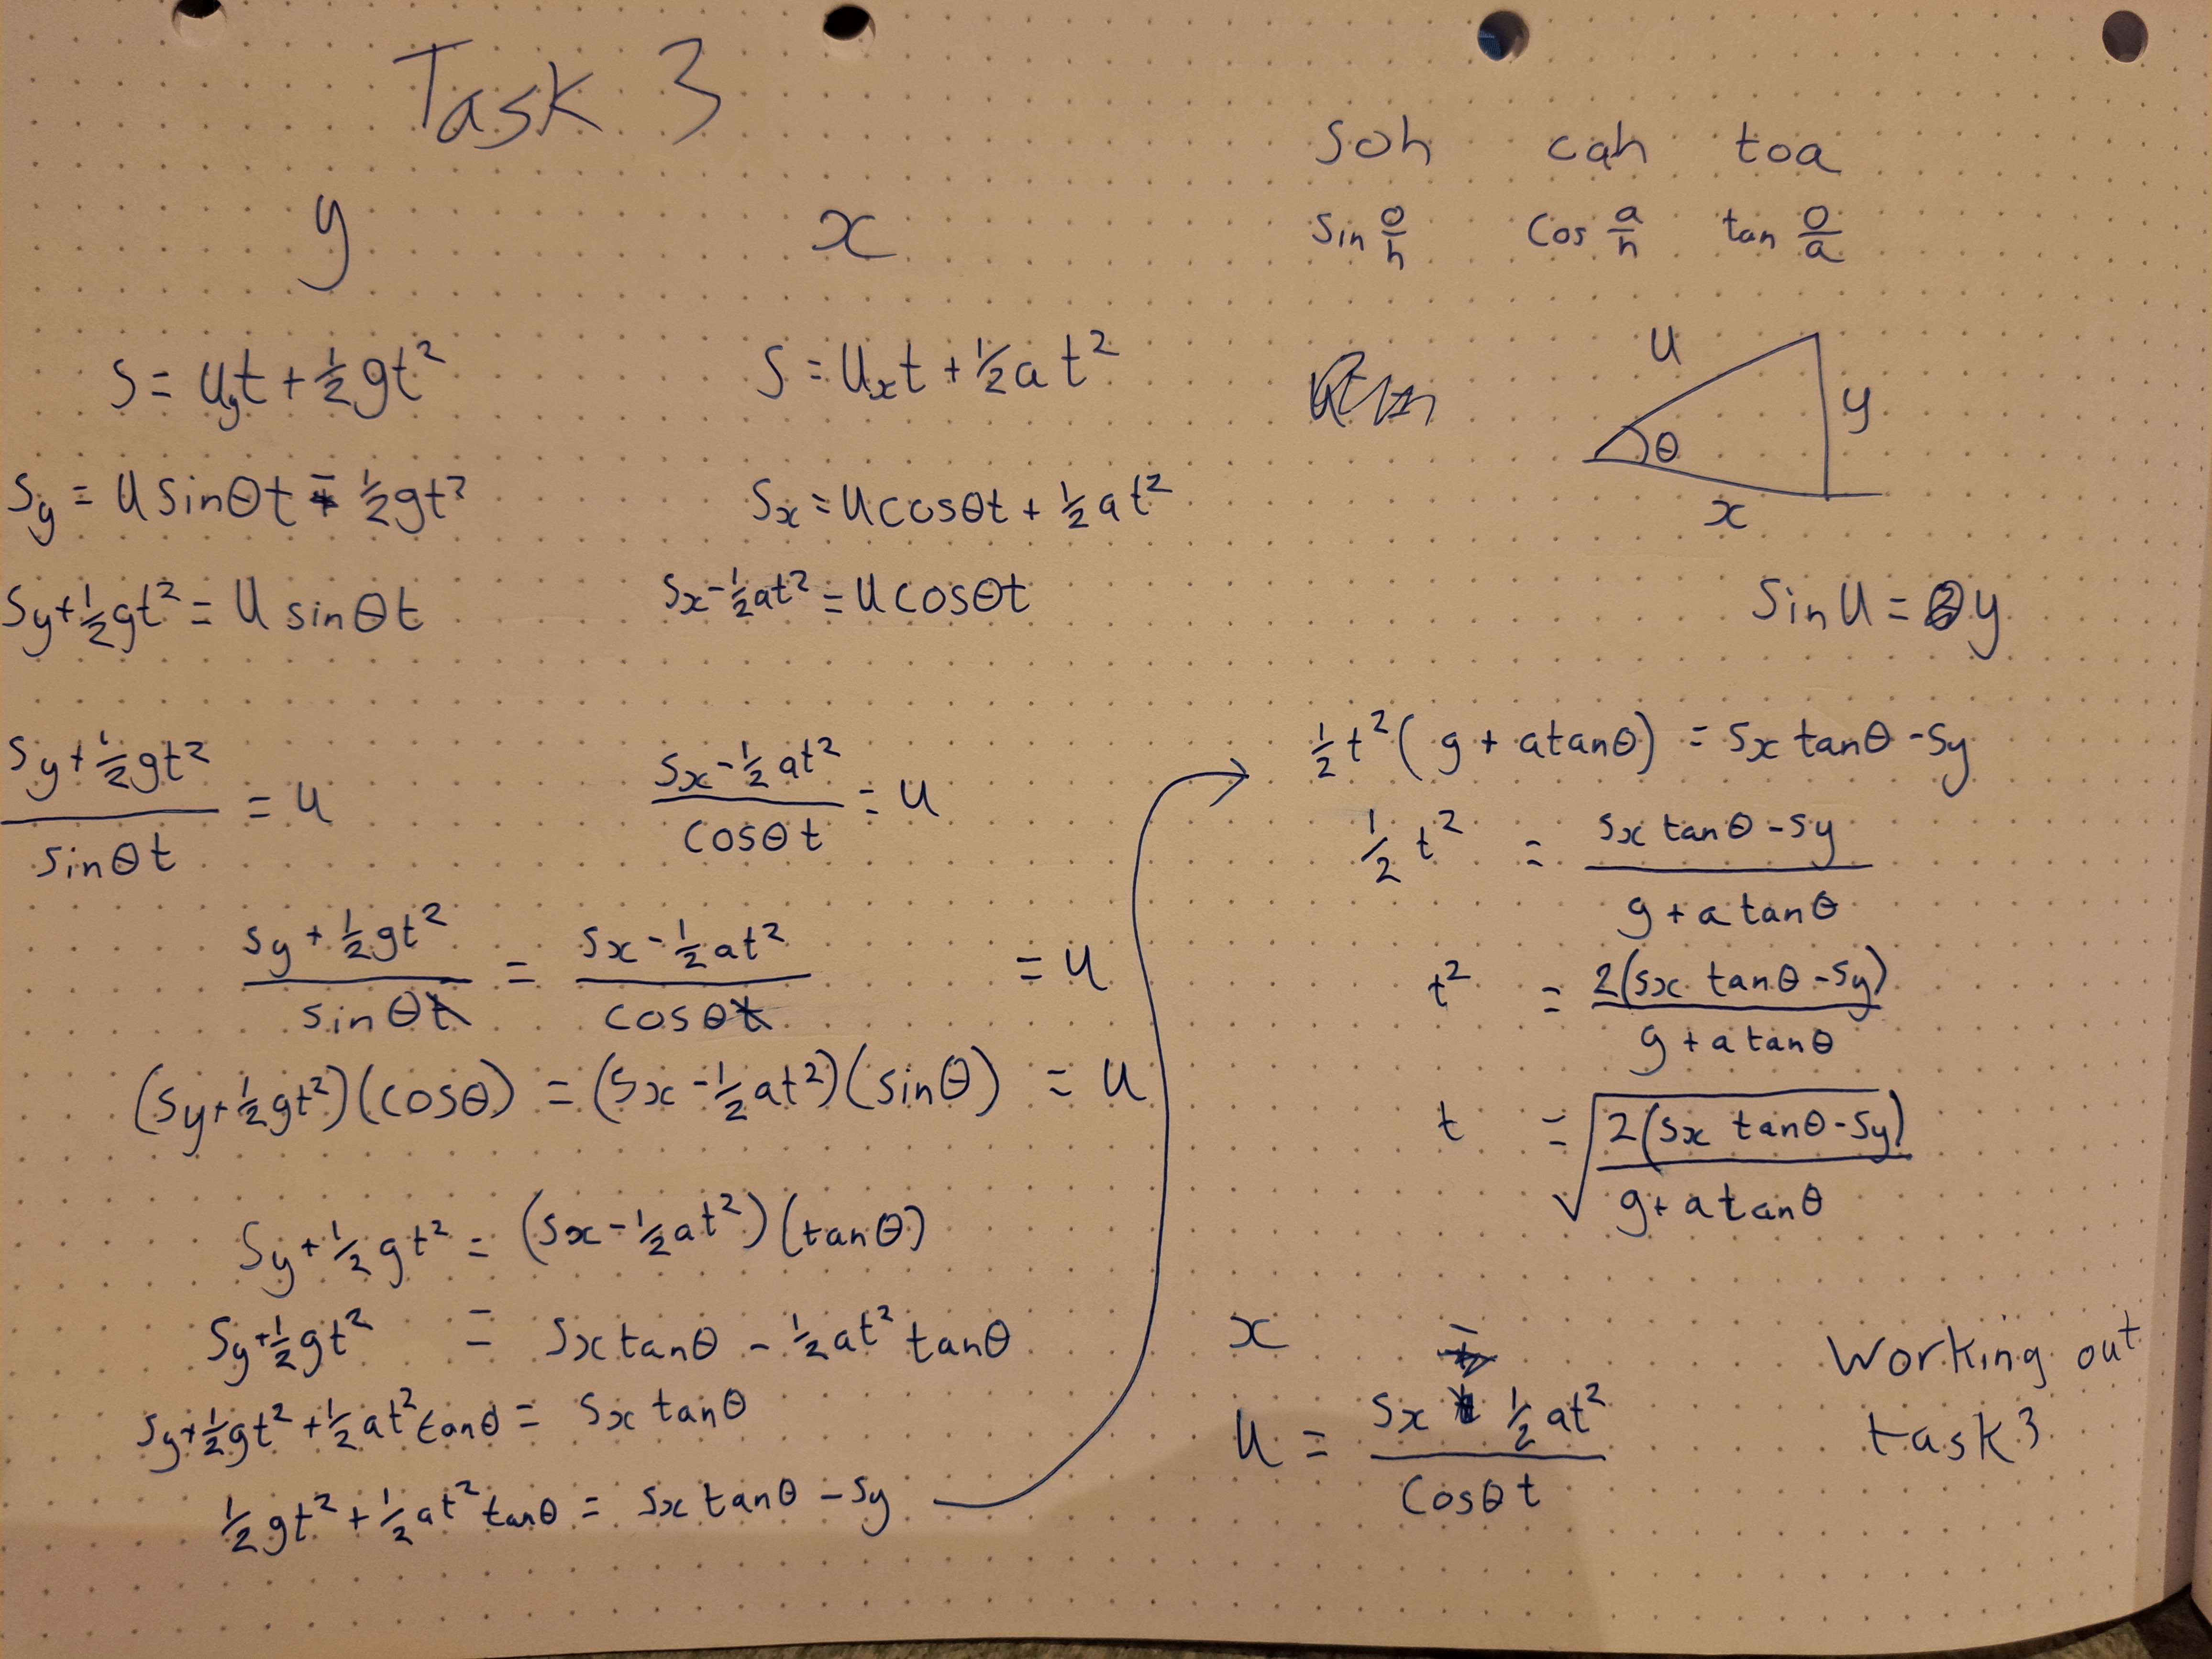 Task 3
y
S = u_y t + ½gt²
S_y = u sinθt - ½gt²
S_y + ½gt² = u sinθt
(S_y + ½gt²)/(sinθt) = u
x
S = u_x t + ½at²
S_x = u cosθt + ½at²
S_x - ½at² = u cosθt
(S_x - ½at²)/(cosθt) = u
(S_y + ½gt²)/(sinθt) = (S_x - ½at²)/(cosθt) = u
(S_y + ½gt²)(cosθ) = (S_x - ½at²)(sinθ) = u
S_y + ½gt² = (S_x - ½at²)(tanθ)
S_y + ½gt² = S_x tanθ - ½at² tanθ
S_y + ½gt² + ½at² tanθ = S_x tanθ
½gt² + ½at² tanθ = S_x tanθ - S_y
soh cah toa
sin o/h cos a/h tan o/a
u
y
θ
x
sin u = y
½t²(g + a tanθ) = S_x tanθ - S_y
½t² = (S_x tanθ - S_y)/(g + a tanθ)
t² = 2(S_x tanθ - S_y)/(g + a tanθ)
t = √(2(S_x tanθ - S_y)/(g + a tanθ))
x -
u = (S_x ½at²)/(cosθt)
Working out
task 3